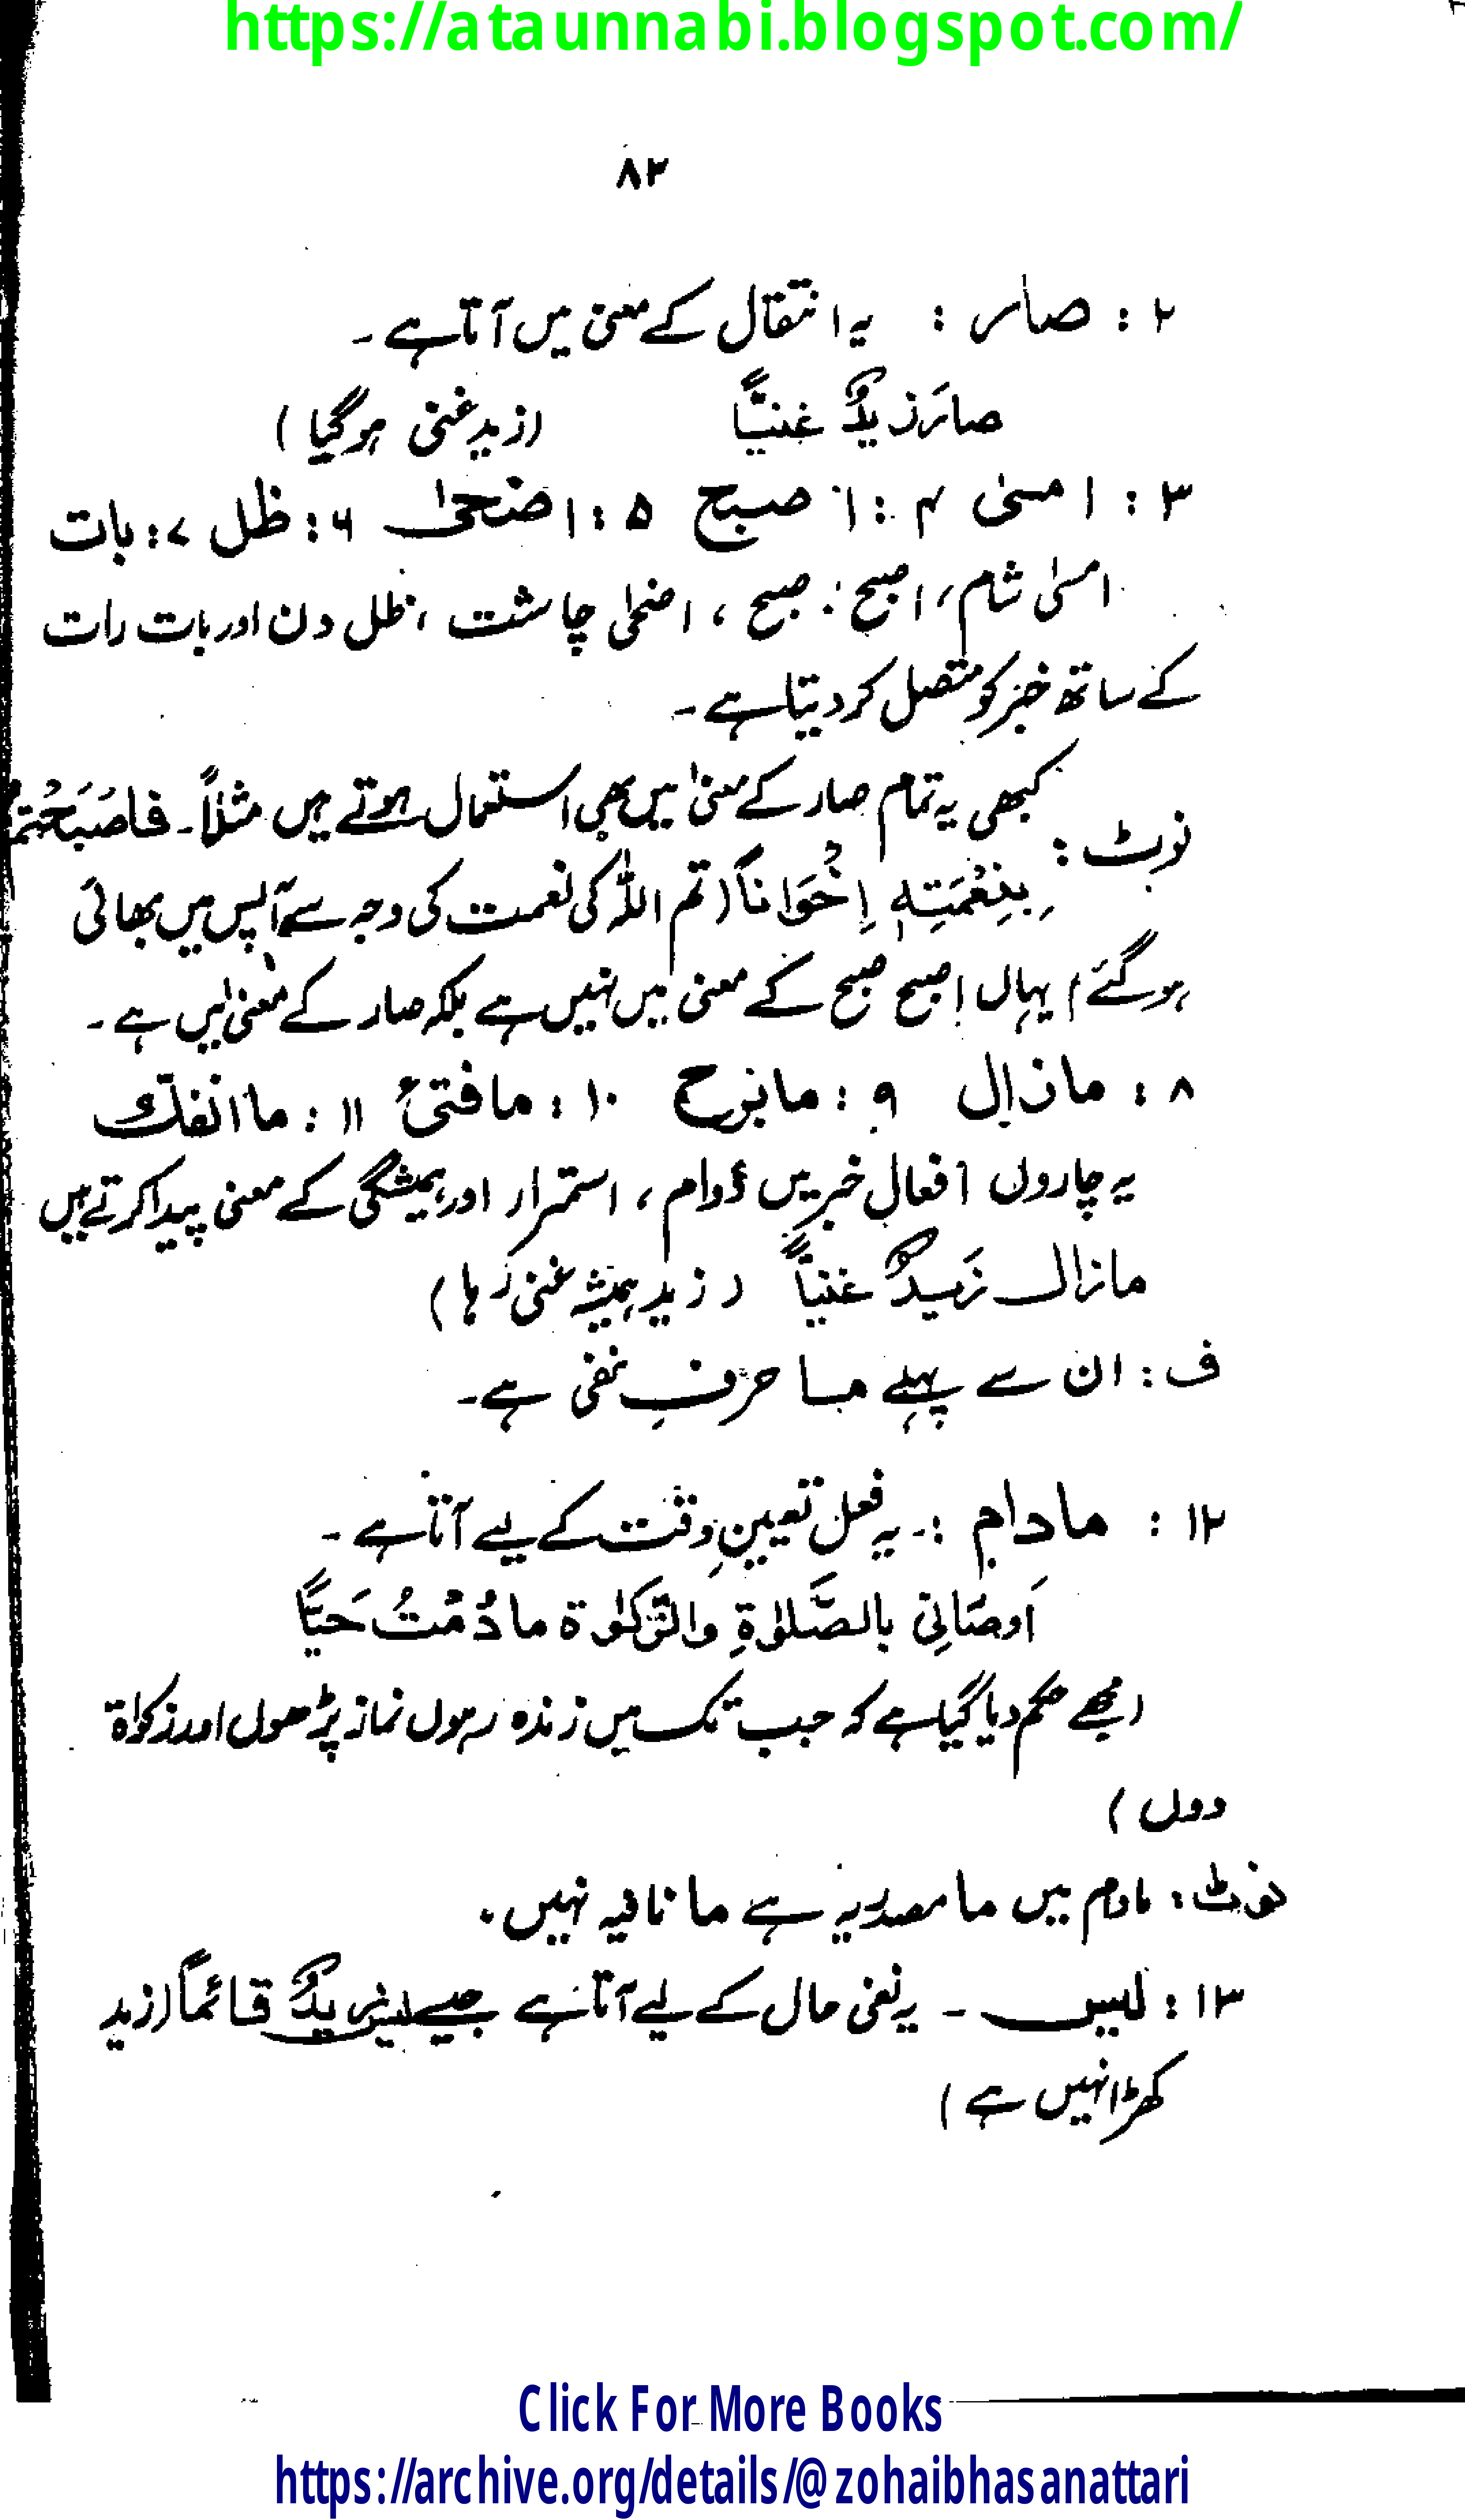 https://ataunnabi.blogspot.com/
۸۳
۲ : صار : یہ انتقال کے معنی میں آتا ہے ۔
صارَ زیدٌ غنیًّا (زید غنی ہوگیا)
۳ : امسیٰ ۴ : اصبح ۵ : اضحیٰ ۶ : ظل ۷ : بات
امسیٰ شام، اصبح : صبح ، اضحیٰ چاشت ، ظل دن اور بات رات
کے ساتھ خبر کو متصل کر دیتا ہے ۔
نوٹ : کبھی یہ تمام صار کے معنیٰ میں بھی استعمال ہوتے ہیں مثلاً ۔ فاصْبَحْتُمْ
بِنِعْمَتِہٖ اِخْوَاناً (تم اللہ کی نعمت کی وجہ سے آپس میں بھائی
ہوگئے) یہاں اصبح صبح کے معنی میں نہیں ہے بلکہ صار کے معنیٰ میں ہے ۔
۸ : مازال ۹ : مابرح ۱۰ : مافتیٔ ۱۱ : ماانفک
یہ چاروں افعال خبر میں دوام ، استمرار اور ہمیشگی کے معنی پیدا کرتے ہیں
مازال زَیدٌ غنیاً (زید ہمیشہ غنی رہا)
ف : ان سے پہلے ما حرفِ نفی ہے ۔
۱۲ : مادام :۔ یہ فعل تعیینِ وقت کے لیے آتا ہے ۔
اَوصَانِی بالصَّلوٰۃِ وَالزَّکوٰۃ مادُمْتُ حَیًّا
(مجھے حکم دیا گیا ہے کہ جب تک میں زندہ رہوں نماز پڑھوں اور زکواۃ
دوں)
نوٹ : مادام میں ما مصدریہ ہے ما نافیہ نہیں ۔
۱۳ : لیس ۔ یہ نفی حال کے لیے آتا ہے جیسے لیس زیدٌ قائماً (زید
کھڑا نہیں ہے)
Click For More Books
https://archive.org/details/@zohaibhasanattari